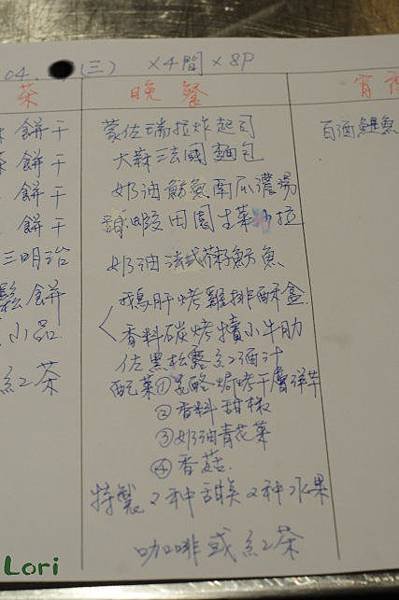 04. (三) ×4間 ×8P
茶 晚餐 宵
餅干
餅干
餅干
餅干
三明治
鬆餅
小品
紅茶
蒙佐瑞拉炸起司
大蒜法國麵包
奶油魴魚南瓜濃湯
甜蝦田園生菜沙拉
奶油法式 魴魚
鵝肝烤雞排酥盒
香料碳烤犢小牛肋
佐黑松露紅酒汁
配菜①乳酪焗烤千層洋芋
②香料甜椒
③奶油青花菜
④香菇
特製2种甜點2种水果
咖啡或紅茶
百酒鮑魚
Lori